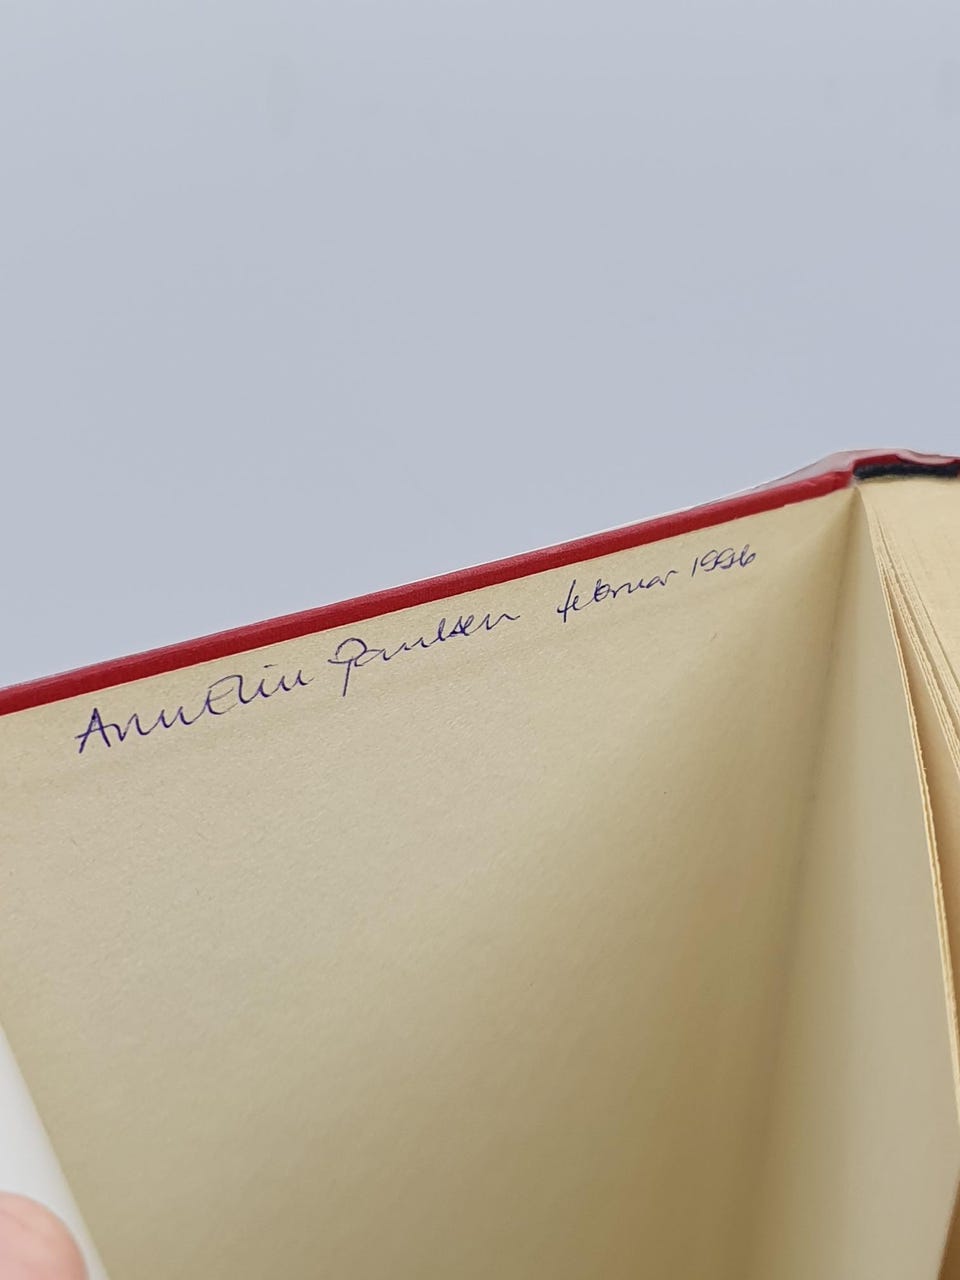 Ann Elin Paulsen februar 1996